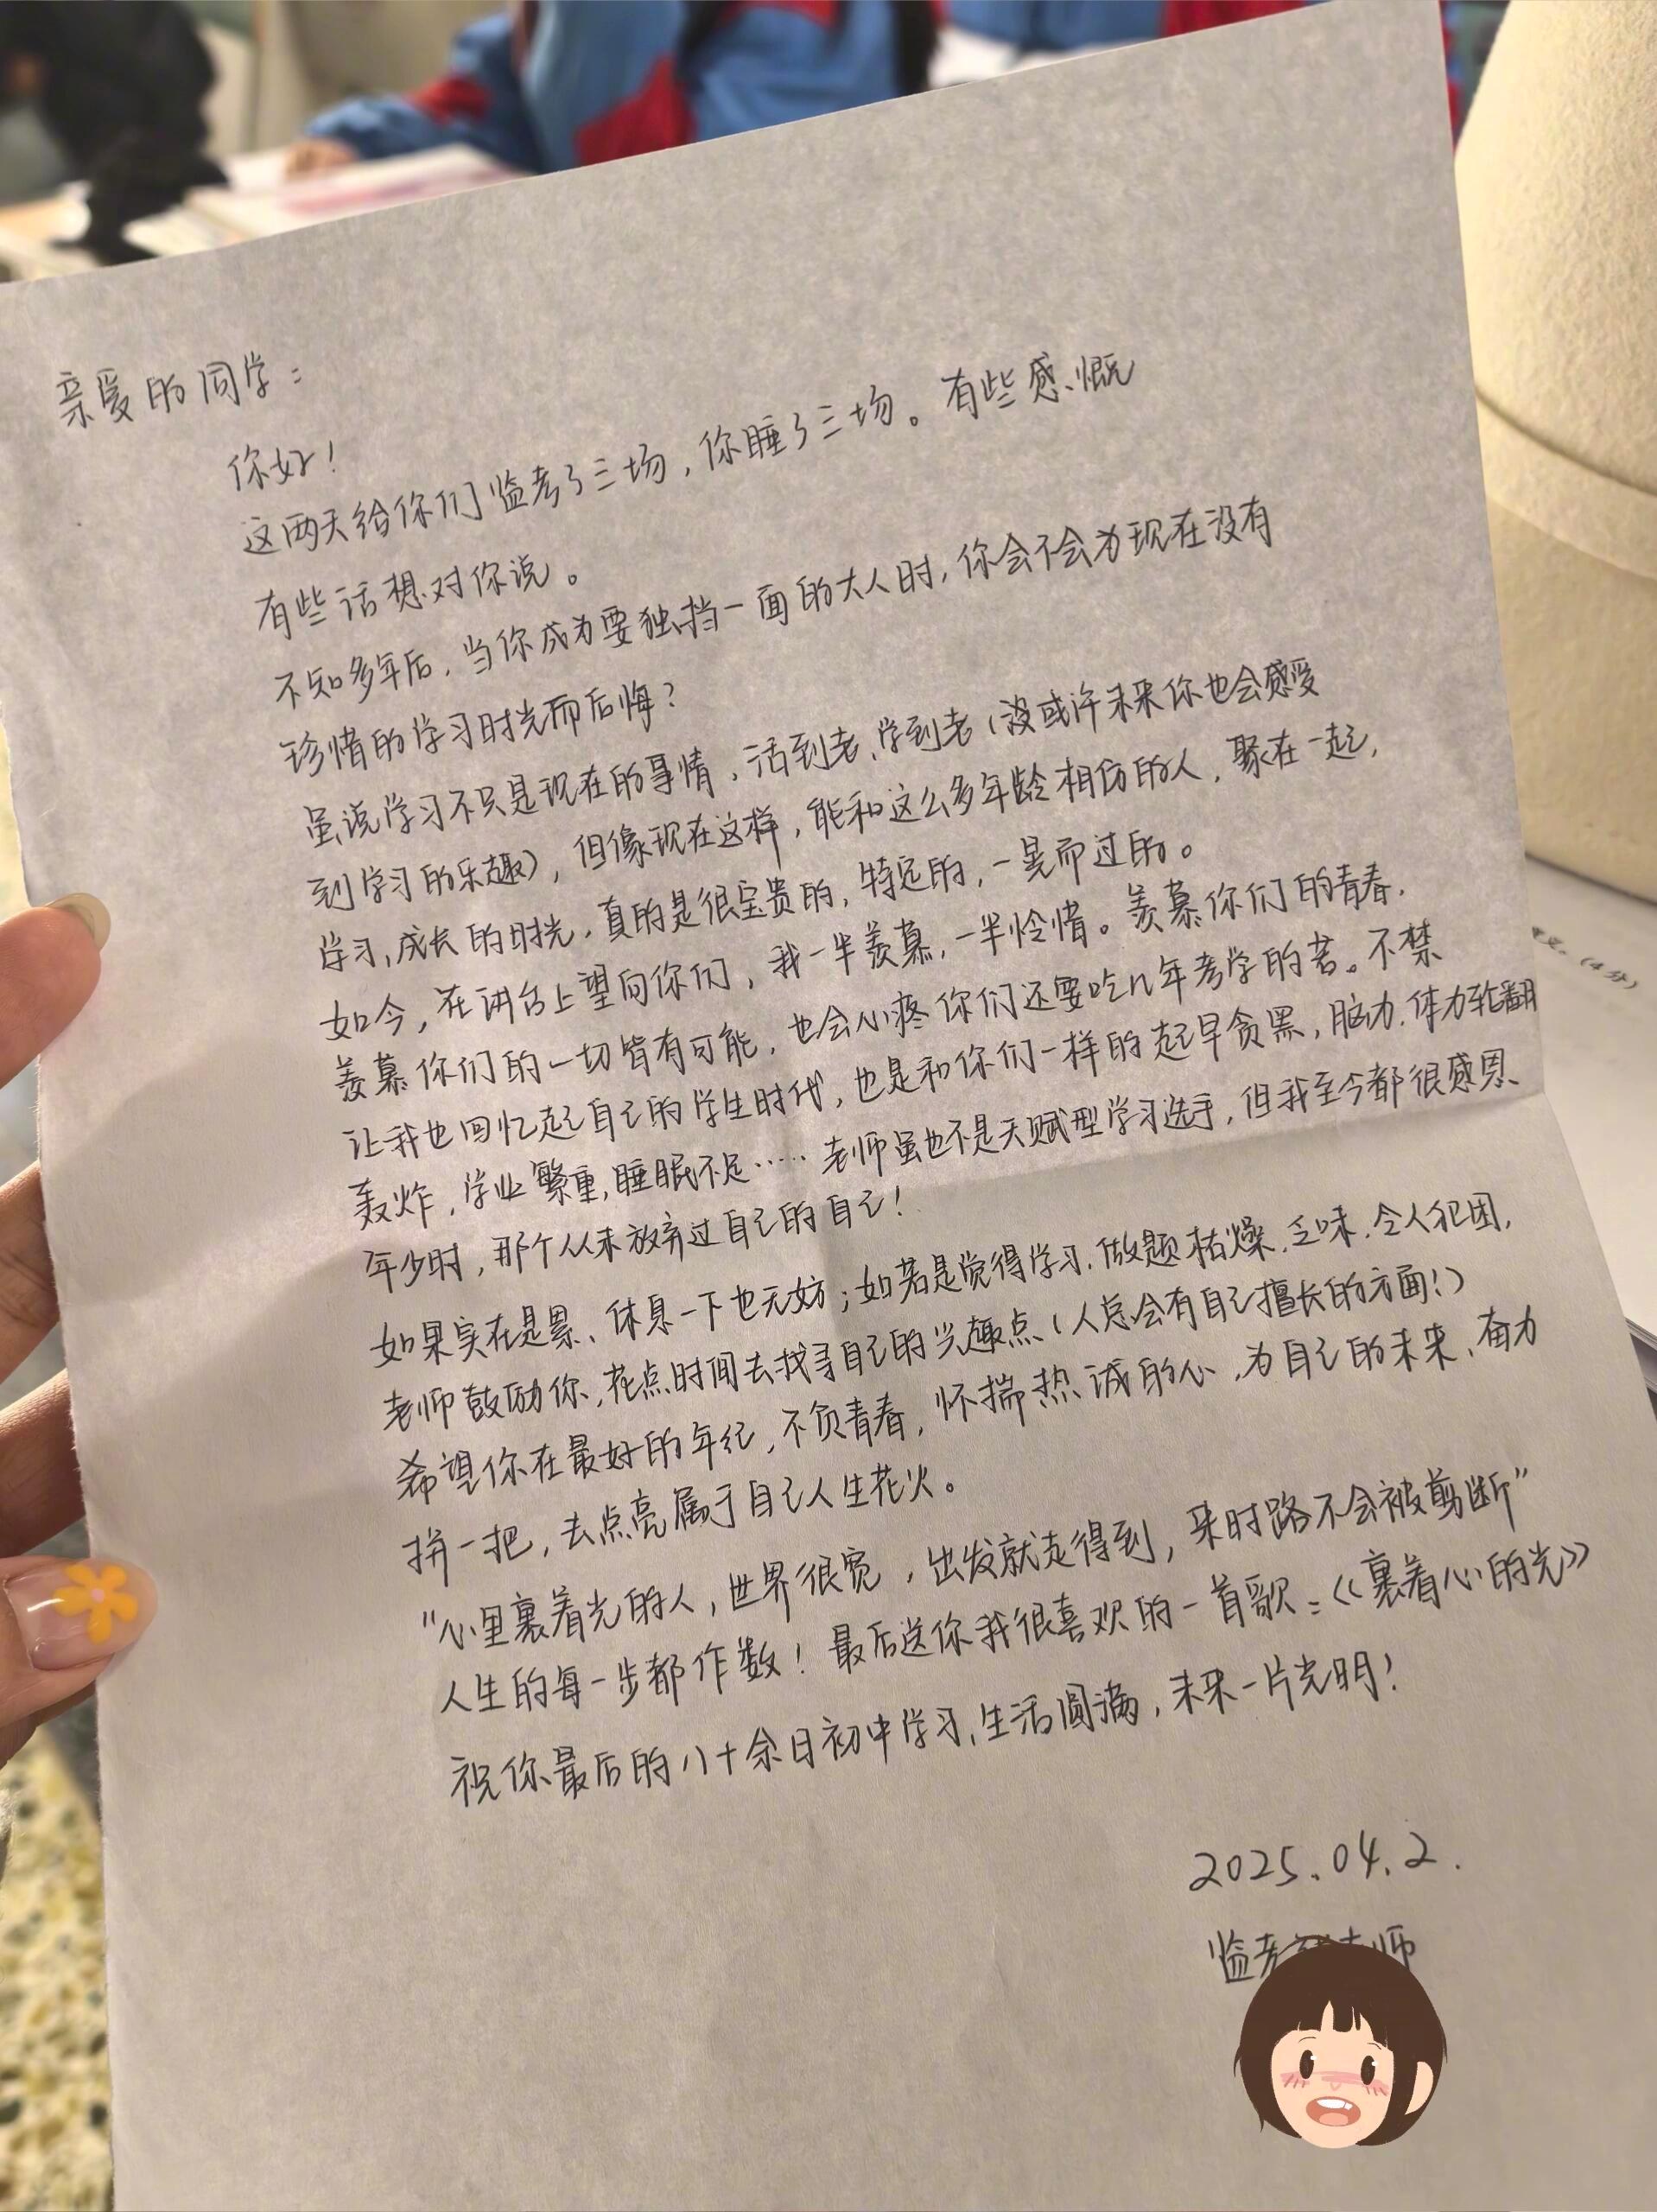 亲爱的同学：
你好！
这两天给你们监考了三场，你睡了三场。有些感慨
有些话想对你说。
不知多年后，当你成为要独挡一面的大人时，你会不会为现在没有
珍惜的学习时光而后悔？
虽说学习不只是现在的事情，活到老、学到老（没或许未来你也会感受
到学习的乐趣），但像现在这样，能和这么多年龄相仿的人，聚在一起，
学习、成长的时光，真的是很宝贵的，特定的，一晃而过的。
如今，在讲台上望向你们，我一半羡慕，一半怜惜。羡慕你们的青春，
羡慕你们的一切皆有可能，也会心疼你们还要吃几年考学的苦。不禁
让我也回忆起自己的学生时代，也是和你们一样的起早贪黑，脑力、体力轮翻
轰炸，学业繁重，睡眠不足……老师虽也不是天赋型学习选手，但我至今都很感恩、
年少时，那个从未放弃过自己的自己！
如果实在是累、休息一下也无妨；如若是觉得学习、做题枯燥、乏味、令人犯困，
老师鼓励你、花点时间去找寻自己的兴趣点（人总会有自己擅长的方面！）
希望你在最好的年纪，不负青春，怀揣热诚的心、为自己的未来、奋力
拼一把，去点亮属于自己人生花火。
“心里裹着光的人，世界很宽，出发就走得到，来时路不会被剪断”
人生的每一步都作数！最后送你我很喜欢的一首歌：《裹着心的光》
祝你最后的八十余日初中学习、生活圆满，未来一片光明！
2025.04.2.
监考 老师
（4分）